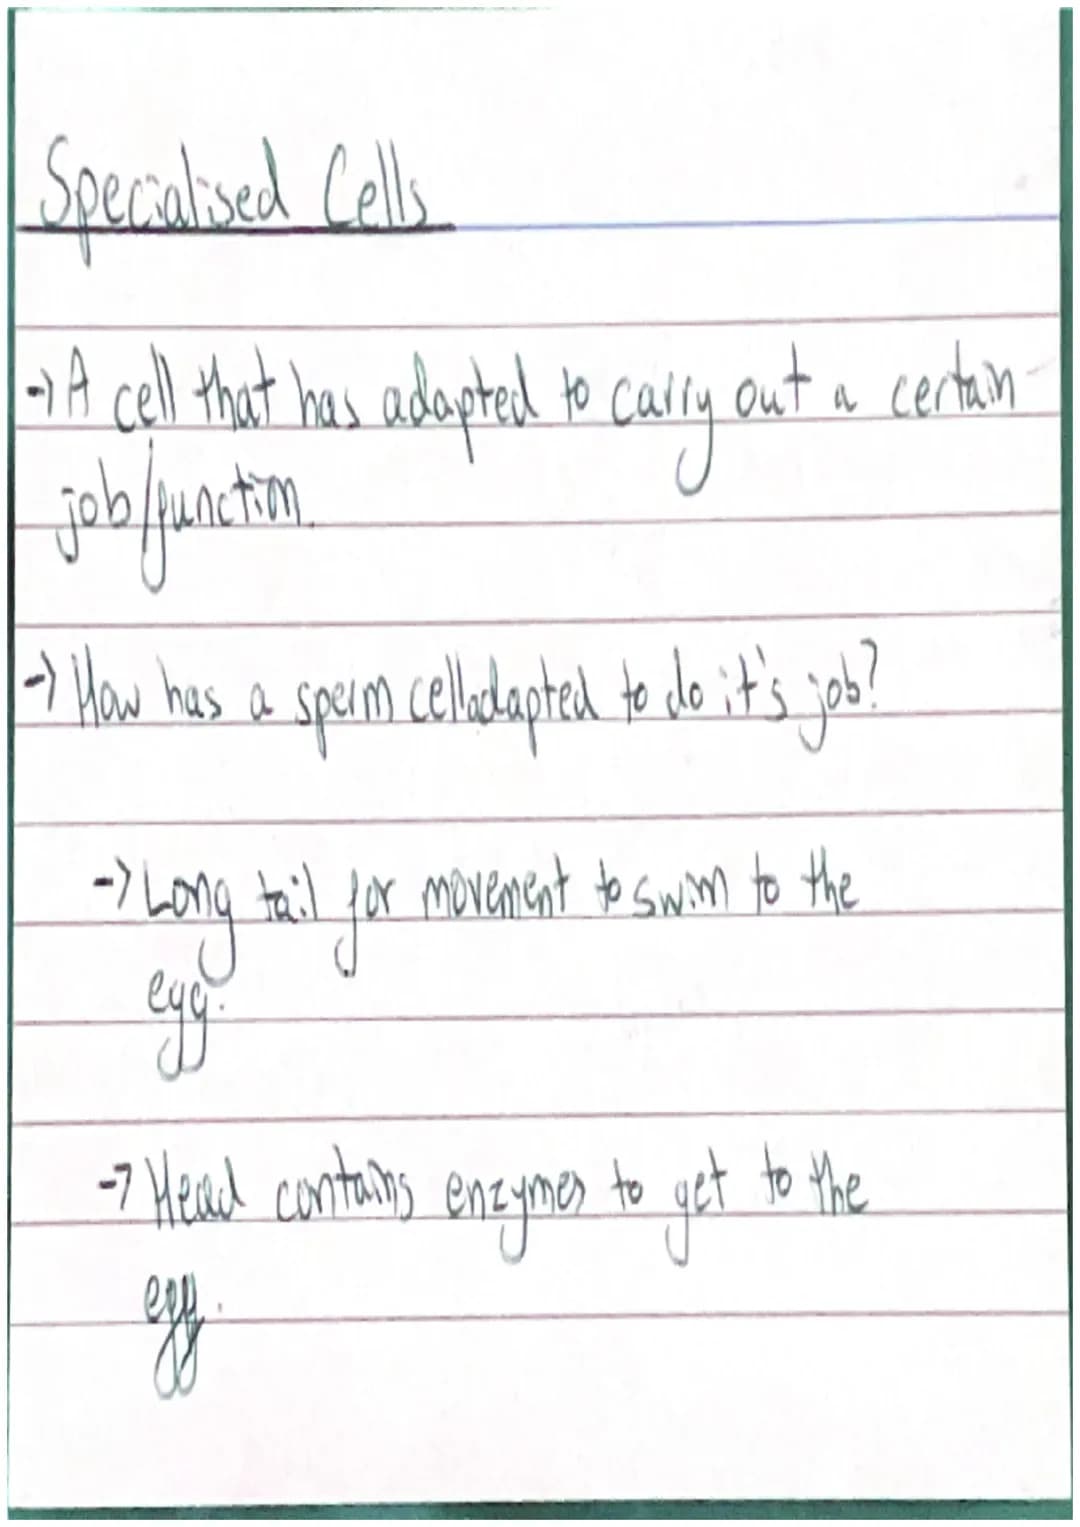 Specialised Cells
-> A cell that has adapted to carry out a certain
job/function.
-> How has a sperm cell adapted to do it's job?
-> Long tail for movement to swim to the
egg.
-> Head contains enzymes to get to the
egg.